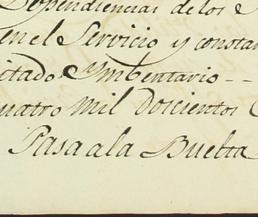 Dependiencias de los
en el Servicio y constan
citado Ymbentario --
quatro mil Doscientos
Pasa a la Buelta